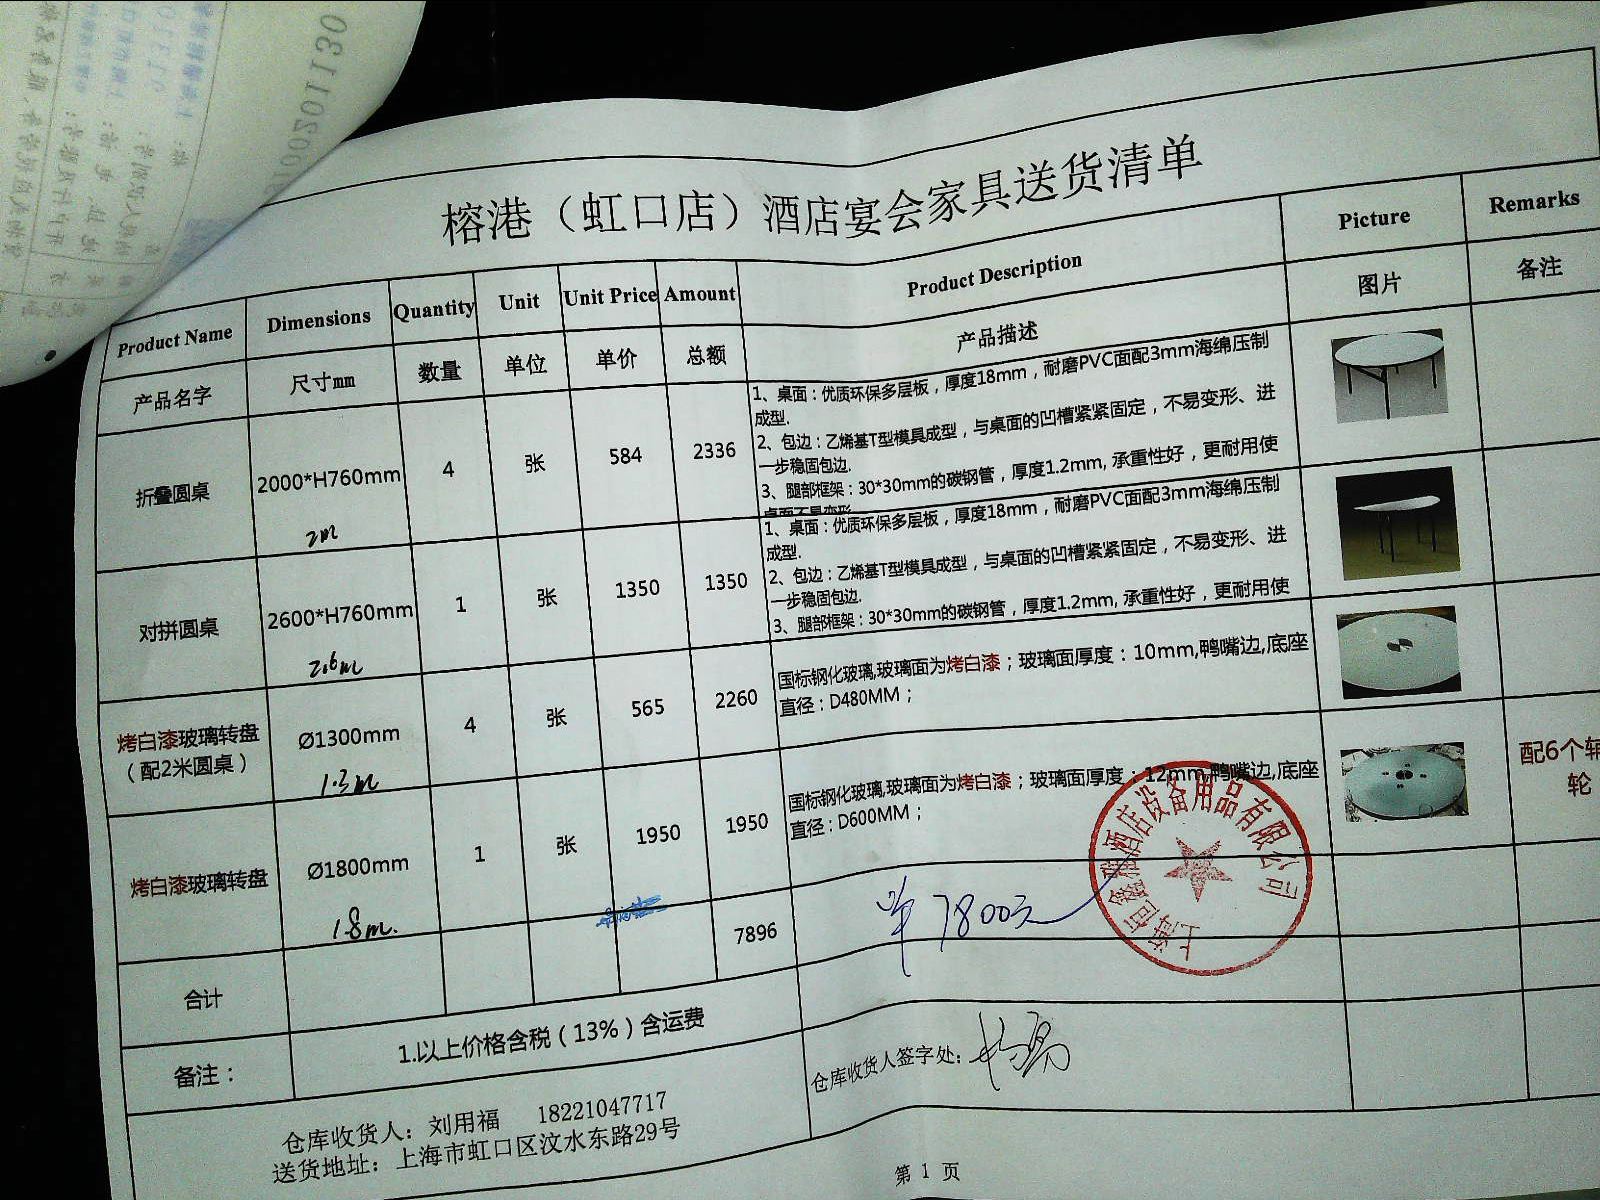 榕港（虹口店）酒店宴会家具送货清单
Product Name Dimensions Quantity Unit Unit Price Amount Product Description Picture Remarks
产品名字 尺寸mm 数量 单位 单价 总额 产品描述 图片 备注
折叠圆桌 2000*H760mm 4 张 584 2336
2m
1、桌面：优质环保多层板，厚度18mm，耐磨PVC面配3mm海绵压制
成型.
2、包边：乙烯基T型模具成型，与桌面的凹槽紧紧固定，不易变形、进
一步稳固包边.
3、腿部框架：30*30mm的碳钢管，厚度1.2mm, 承重性好，更耐用使
桌面不易变形.
对拼圆桌 2600*H760mm 1 张 1350 1350
2.6m
1、桌面：优质环保多层板，厚度18mm，耐磨PVC面配3mm海绵压制
成型.
2、包边：乙烯基T型模具成型，与桌面的凹槽紧紧固定，不易变形、进
一步稳固包边.
3、腿部框架：30*30mm的碳钢管，厚度1.2mm, 承重性好，更耐用使
烤白漆玻璃转盘
（配2米圆桌） Ø1300mm 4 张 565 2260
1.3m
国标钢化玻璃,玻璃面为烤白漆；玻璃面厚度：10mm,鸭嘴边,底座
直径：D480MM；
烤白漆玻璃转盘 Ø1800mm 1 张 1950 1950
1.8m.
国标钢化玻璃,玻璃面为烤白漆；玻璃面厚度：12mm,鸭嘴边,底座
直径：D600MM；
配6个
轮
合计 7896
7800元
酒店设备用品有限公司
备注： 1.以上价格含税（13%）含运费
仓库收货人签字处:
仓库收货人: 刘用福 18221047717
送货地址: 上海市虹口区汶水东路29号
第 1 页